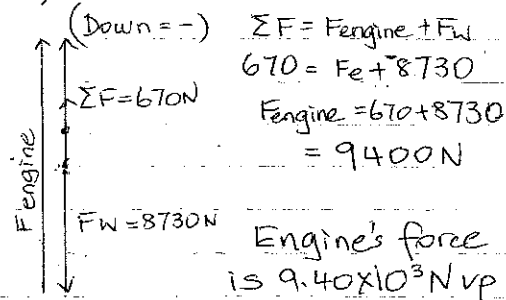 (Down = -)
ΣF = Fengine + Fw
670 = Fe + ⁻8730
ΣF = 670N
Fengine = 670 + 8730
= 9400N
Fengine
Fw = 8730N
Engine's force
is 9.40x10³ N up